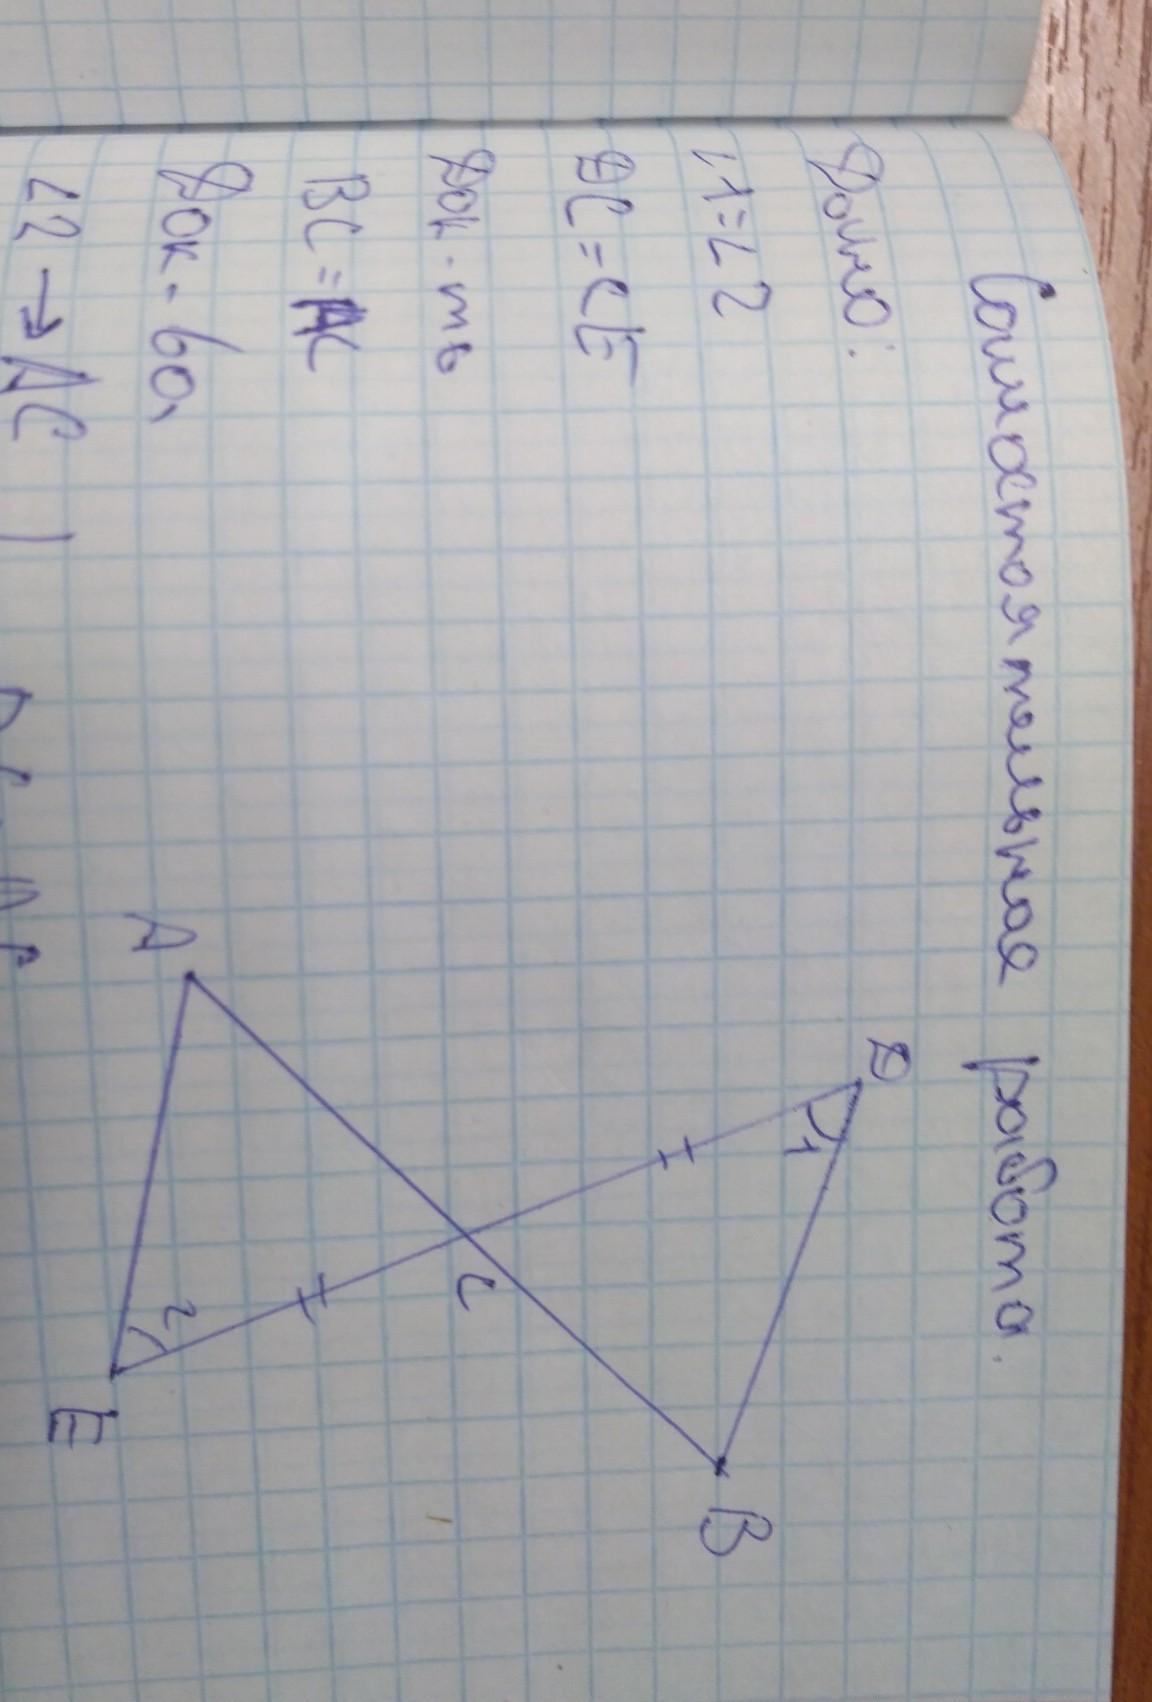 Самостоятельная работа.
Дано:
∠1=∠2
DC=CE
Док-ть
BC=AC
Док-во,
∠2→AC
D
1
B
C
A
2
E